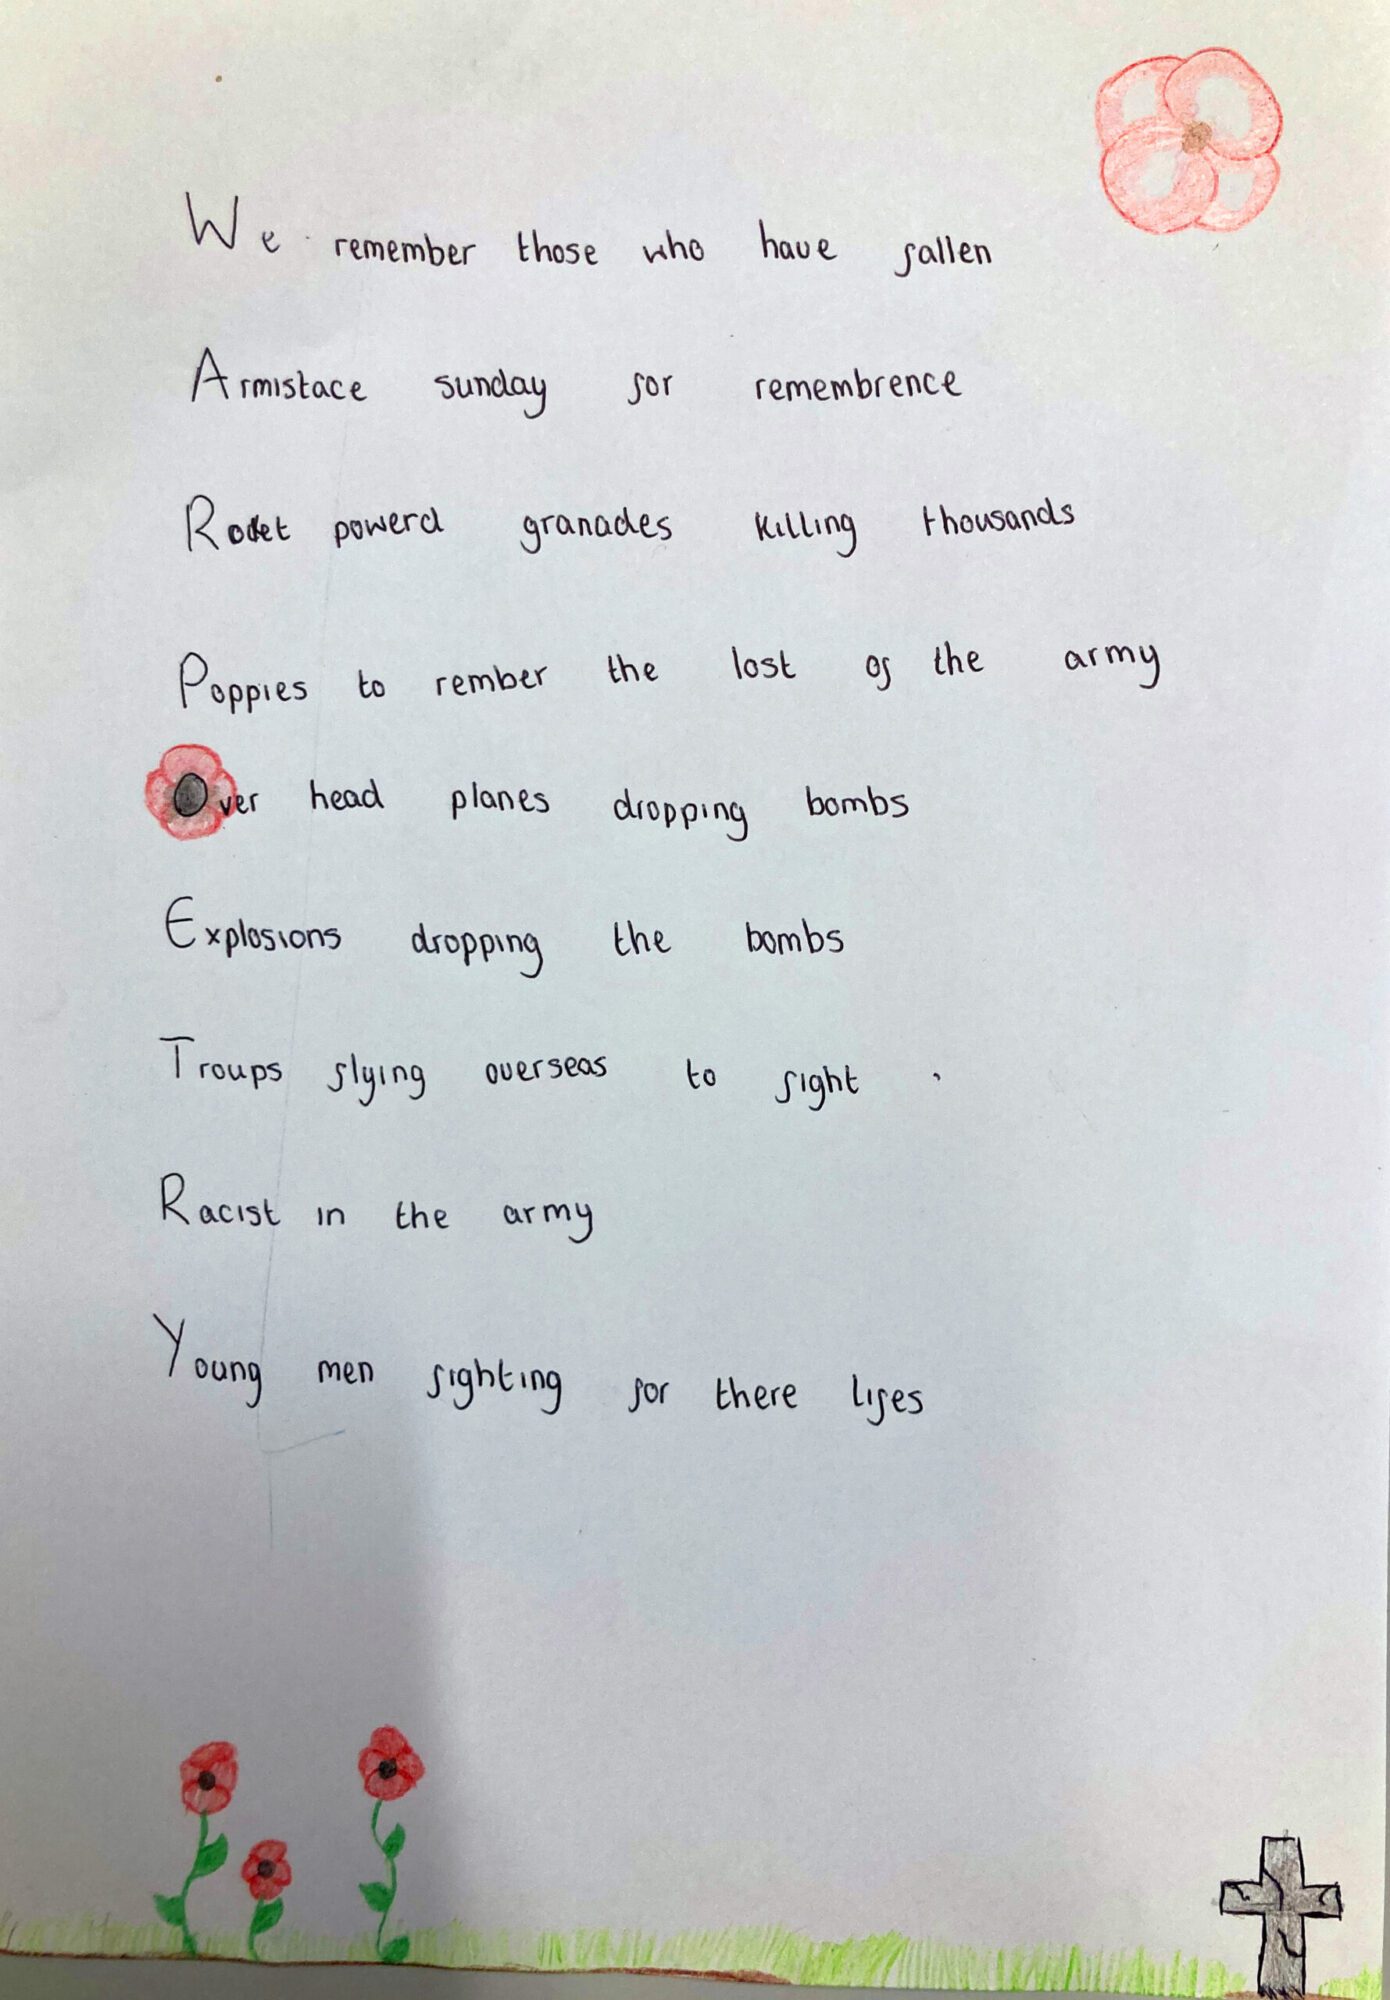 We remember those who have fallen
Armistace sunday for remembrence
Rocket powerd granades killing thousands
Poppies to rember the lost of the army
Over head planes dropping bombs
Explosions dropping the bombs
Troups flying overseas to fight
Racist in the army
Young men fighting for there lifes